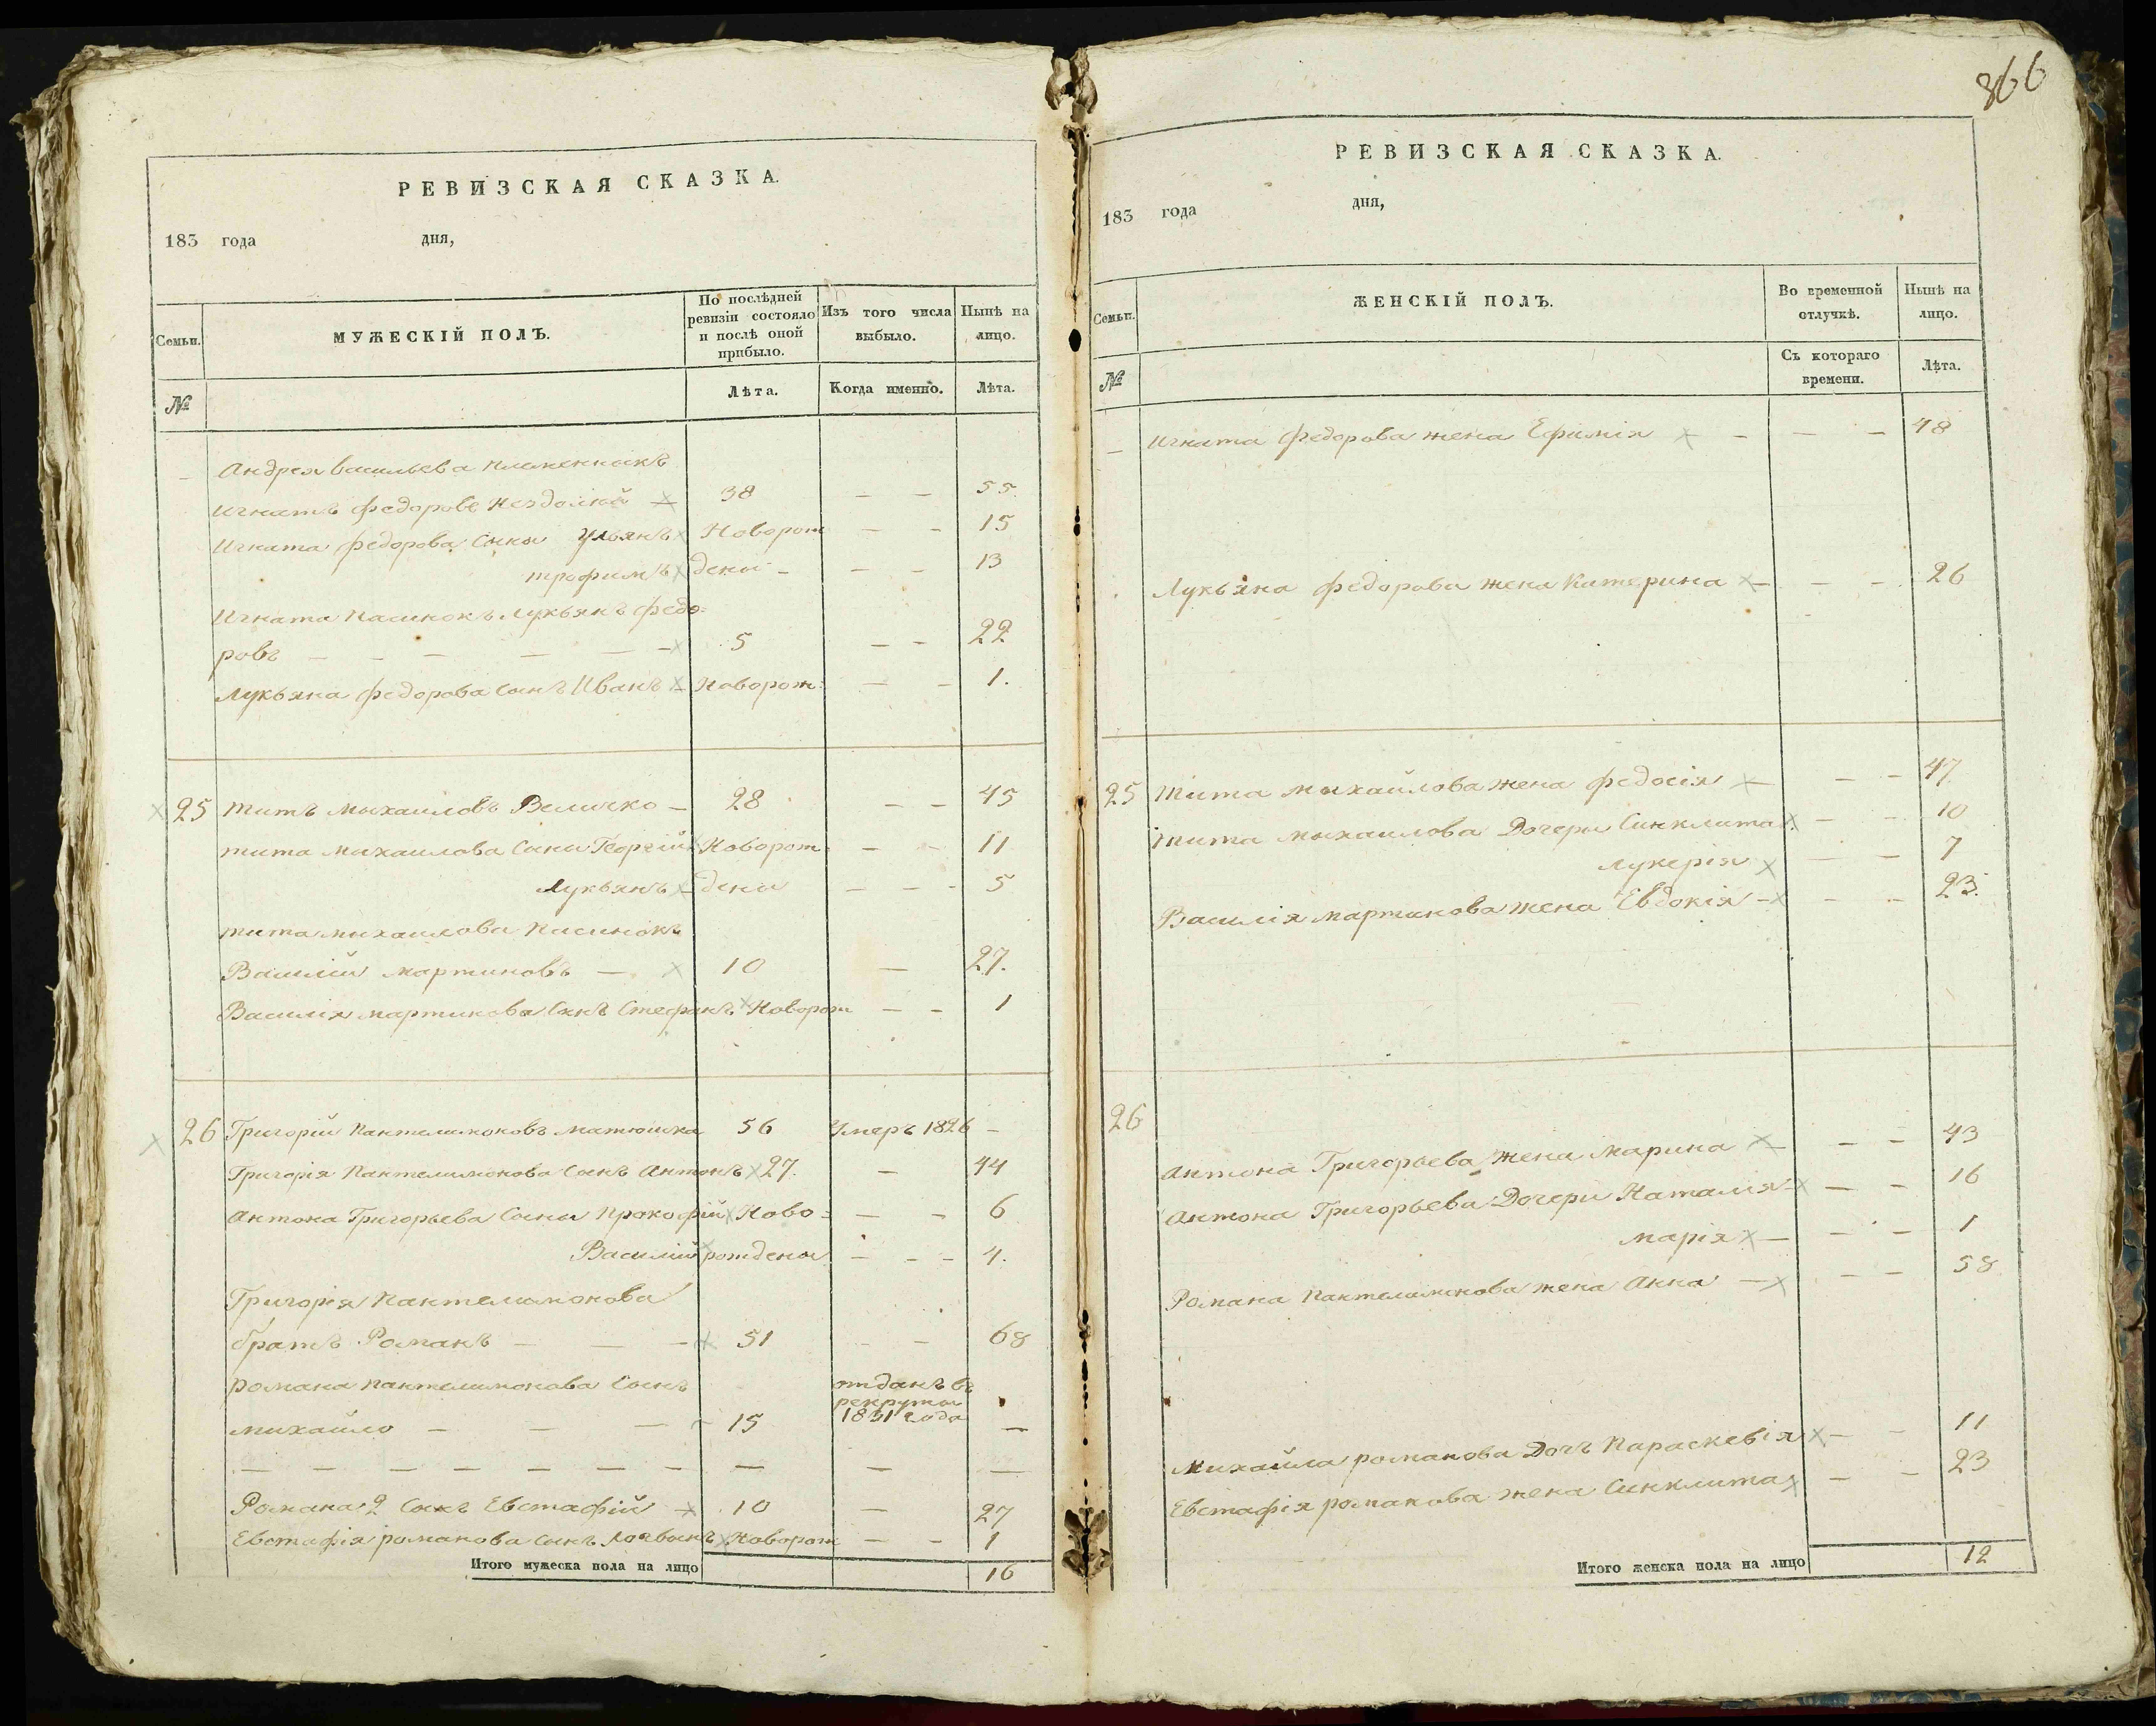 366
РЕВИЗСКАЯ СКАЗКА.
183 года дня,
Семьи. МУЖЕСКІЙ ПОЛЪ. По послѣдней ревизіи состояло и послѣ оной прибыло. Изъ того числа выбыло. Нынѣ на лицо.
№ Лѣта. Когда именно. Лѣта.
— Андрея Васильева племенникъ
Игнатъ Федоровъ — 38 — — 55.
Игната Федорова Сыны Ульянъ Новорож — — 15
трофимъ дены — — — 13
Игната Пасинокъ Лукьянъ Федо=
ровъ — — — — — — 5 — — 22
Лукьяна Федорова Сынъ Иванъ — Новорож: — — 1.
25 Титъ Михаиловъ Величко — 28 — — 45
тита Михаилова Сыны Георгій Новорож — — 11
Лукьянъ — дены — — — 5
тита Михаилова Пасинокъ
Василій Мартиновъ — 10 — 27.
Василія Мартинова Сынъ Стефанъ Новорож — — 1
26 Григорій Пантелимоновъ Матюшка 56 Умеръ 1826 —
Григорія Пантелимонова Сынъ Антонъ 27. — 44
Антона Григорьева Сыны Прокофій Ново= — — 6
Василій рождены — — — 4.
Григорія Пантелимонова
братъ Романъ — — — 51 — — 68
Романа Пантелимонова Сынъ
Михайло — — — — 15 отданъ въ рекруты 1831 года —
— — — — — — — — — — — —
Романа 2 Сынъ Евстафій — 10 — 27
Евстафія Романова Сынъ Новорож — — 1
Итого мужеска пола на лицо 16
РЕВИЗСКАЯ СКАЗКА.
183 года дня,
Семьи. ЖЕНСКІЙ ПОЛЪ. Во временной отлучкѣ. Нынѣ на лицо.
№ Съ котораго времени. Лѣта.
— Игната Федорова жена Ефимія — — — 48
Лукьяна Федорова жена Катерина — — — 26
25 Тита Михайлова жена Федосія — — — 47
Тита Михаилова Дочери Синклита — — 10
Лукерія — — 7
Василія Мартинова жена Евдокія — — — 23.
26
Антона Григорьева жена Марина — — — 43
Антона Григорьева Дочери Наталія — — — 16
Марія — — — 1
Романа Пантелимонова жена Анна — — — 58
Михайла Романова Дочъ Параскевія — — 11
Евстафія Романова жена Синклита — — 23
Итого женска пола на лицо 12